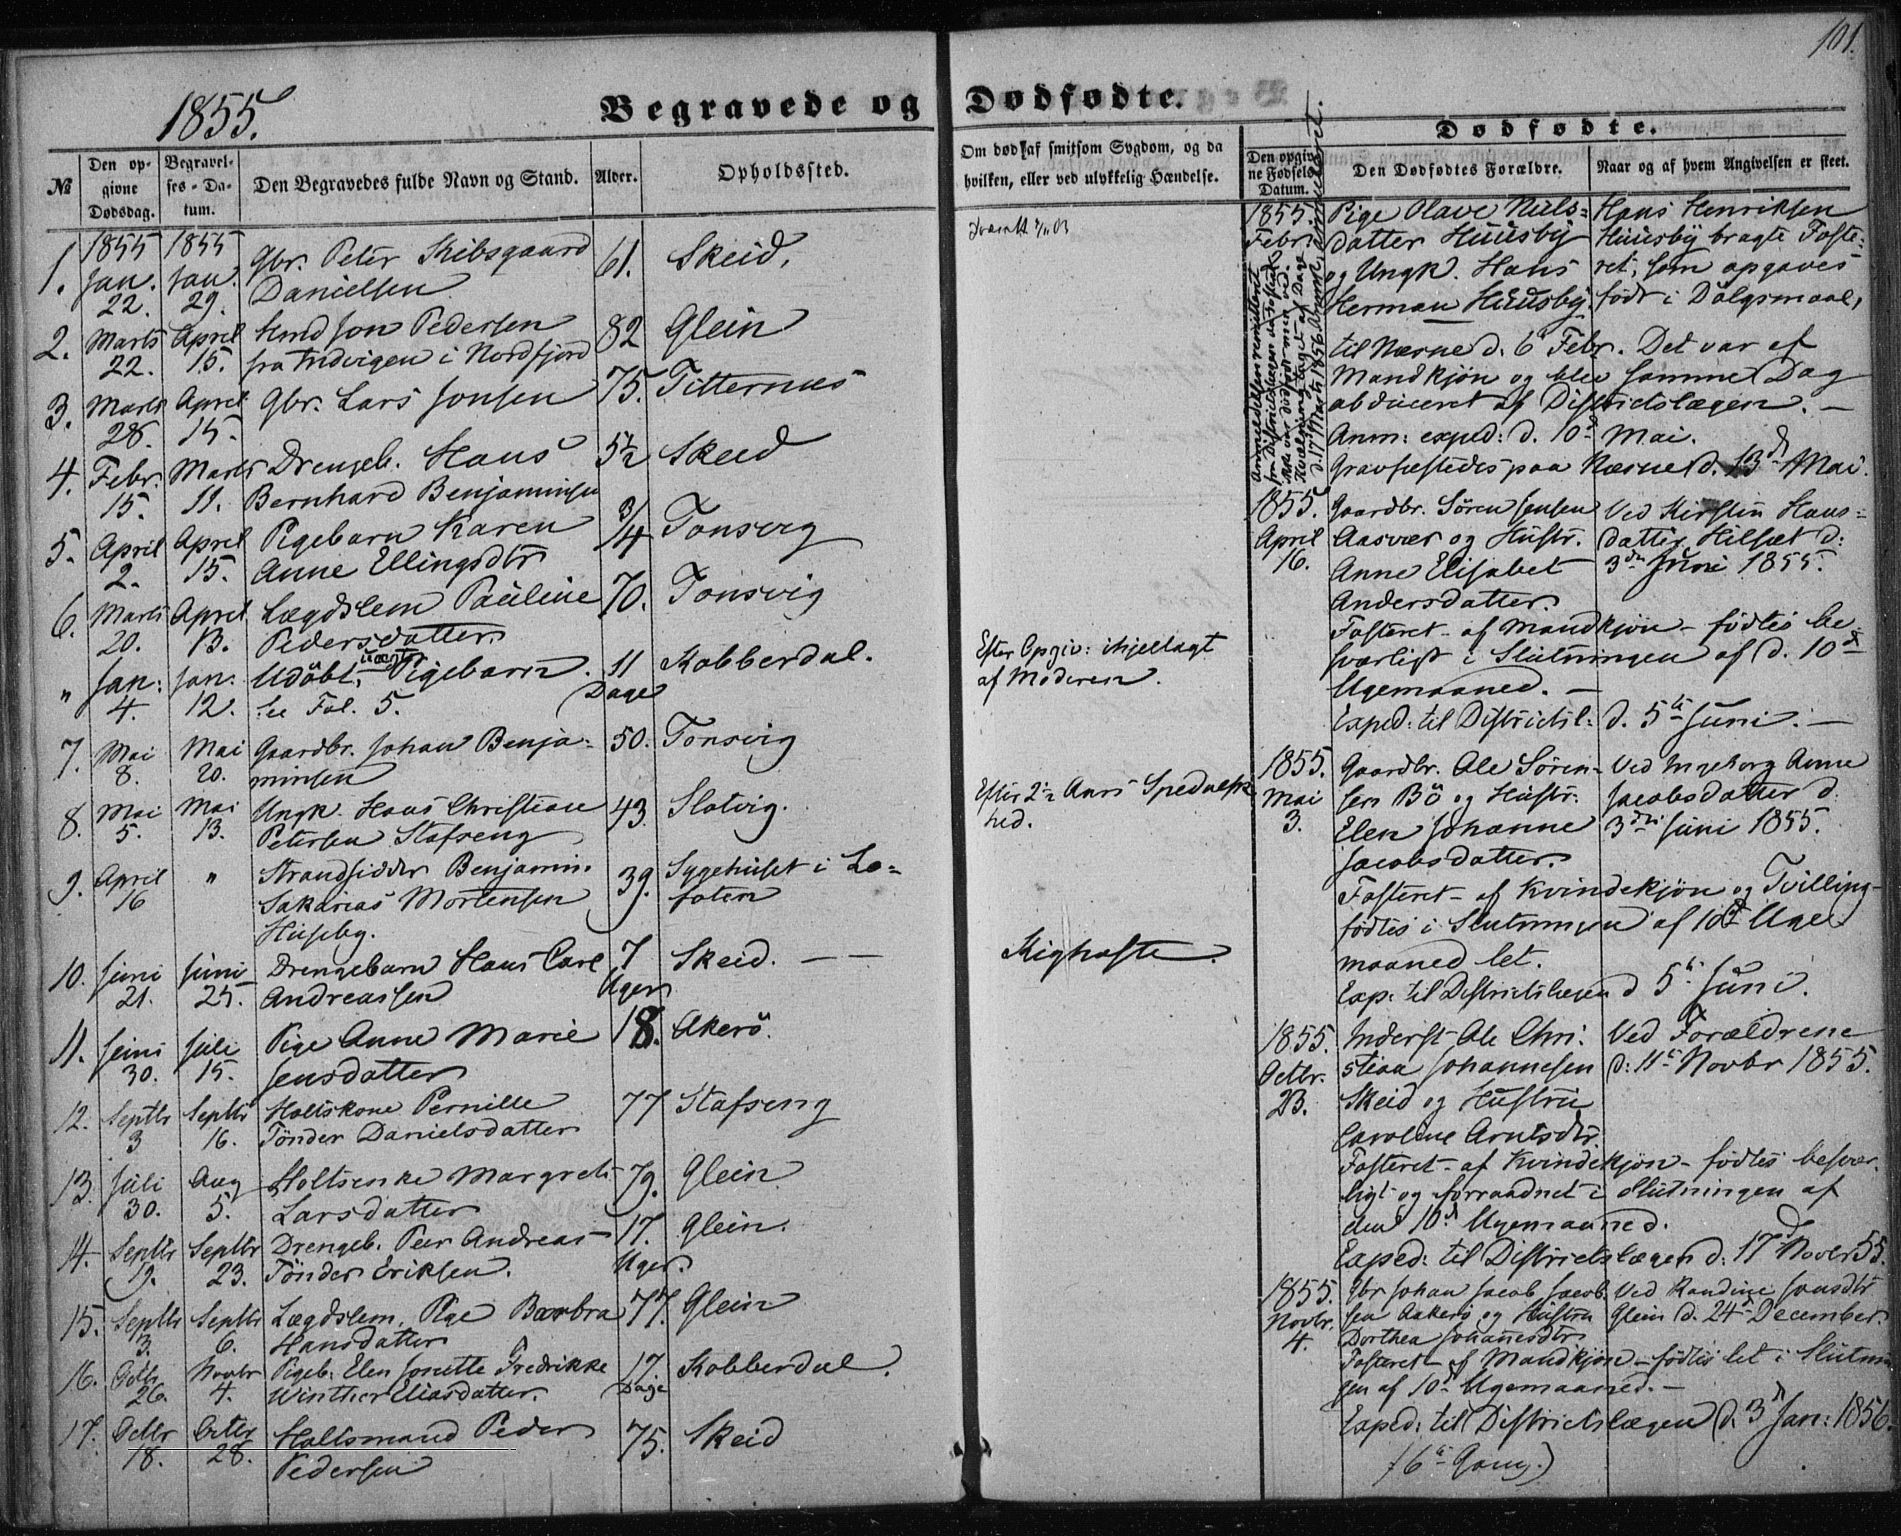 101.
1855.
Begravede og Dødfødte.
№
Den opgivne Dødsdag.
Begravelses-Datum.
Den Begravedes fulde Navn og Stand.
Alder.
Opholdssted.
Om død af smitsom Sygdom, og da
hvilken, eller ved ulykkelig Hændelse.
Dødfødte.
Den opgivne Fødsels Datum.
Den Dødfødtes Forældre.
Naar og af hvem Angivelsen er skeet.
1. 1855 Jan. 22. 1855 Jan. 29. Gbr. Peter Skibsgaard 61. Skeid.
Danielsen
2. Marts 22. April 15. Pedersen 82 Glein
fra i Nordfjord
3. Marts 28. April 15. Gbr. Lars Jonsen 75. Titternes
4. Febr. 15. Marts 11. Drengeb. Hans 5½ Skeid
Bernhard Benjaminsen
5. April 2. April 15. Pigebarn Karen 3/4 Tonsvig
Anne Ellingsdtr
6. Marts 20. April 13. Lægdslem Pauline 70. Tonsvig
Pedersdatter
" Jan: 4. Jan. 12. Udöbt, uægte Pigebarn. 11 Dage Kobberdal.
se Fol. 5.
Efter Opgiv: ihjellagt
af Moderen.
7. Mai 8. Mai 20. Gaardbr. Johan Benja- 50. Tonsvig
minsen
8. Mai 5. Mai 13. Ungk. Hans Christian 43. Slotvig.
Petersen Stafseng
Efter 2½ Aars Spedalsk
hed.
9. April 16 " Strandsidder Benjamin 39. Sygehuset i Lo-
Sakarias Mortensen foten
Huseby.
10. Juni 21. Juni 25. Drengebarn Hans Carl 7 Uger Skeid. — —
Andreassen
Kighoste.
11. Juni 30. Juli 15. Pige Anne Marie 18. Akerö.
Jensdatter
12. Septbr 3 Septbr 16. Holtskone Pernille 77 Stafseng
Tönder Danielsdatter
13. Juli 30. Aug 5. Holtsenke Margrete 79. Glein
Larsdatter
14. Septbr 19. Septbr 23. Drengeb. Peer Andreas 17. Uger. Glein.
Tönder Eriksen.
15. Septbr 3. Septbr 6. Lægdslem, Pige Barbra 77. Glein
Hansdatter
16. Octbr 26. Novbr 4. Pigeb. Elen Jonette Fredrikke 17. Dage Kobberdal.
Winther Eliasdatter.
17. Octbr 18. Octbr 28. Holtsmand Peder 75. Skeid
Pedersen
1855. Febr. Pige Olave Nils- Hans Henriksen
datter Huusby Huusby bragte Foste-
og Ungk. Hans ret, som opgaves
Herman Huusby. født i Dølgsmaal,
til Næsne d. 6 Febr. Det var af
Mandkjøn og blev samme Dag
obduceret af Districtslægen. —
Anm: exped: d. 10d Mai.
Gravfæstedes paa Næsne d. 13d Mai.
1855. April 16. Gaardbr. Sören Jensen Ved Kirstin Hans-
Aasvær og Hustr. datter Hilsæt d:
Anne Elisabet 3die Juni 1855.
Andersdatter.
Fosteret - af Mandkjøn - fødtes be-
sværligt i Slutningen af d. 10d
Ugemaaned. —
Exped: til Districtsl: d. 5te Juni. —
1855. Mai 3. Gaardbr. Ole Sören- Ved Ingeborg Anne
sen Bö og Hustr: Jacobsdatter d.
Elen Johanne 3die Juni 1855.
Jacobsdatter.
Fosteret - af Kvindekjøn og Tvilling -
fødtes i Slutningen af 10d Uge
maaned let.
Exp: til Districtslægen d 5te Juni.
1855. Octbr. 23. Inderst Ole Chri- Ved Forældrene
stian Johannesen d: 11te Novbr 1855.
Skeid og Hustru
Caroline Arntsdtr.
Fosteret - af Kvindekjøn - fødtes besvær-
ligt og forraadnet i Slutningen af
den 10d Ugemaaned.
Exped: til Districtslægen d: 17d Novbr 55.
1855. Novbr. 4. Gbr Johan Jacob Jacob- Ved Randine Jonsdtr
sen Aakerö og Hustru Glein d. 24d December.
Dorthea Johanesdtr.
Fosteret af Mandkjøn - fødtes let i Slutnin
gen af 10d Ugemaaned. —
Exped: til Districtslægen d. 3d Jan: 1856.
(6te Gang.)